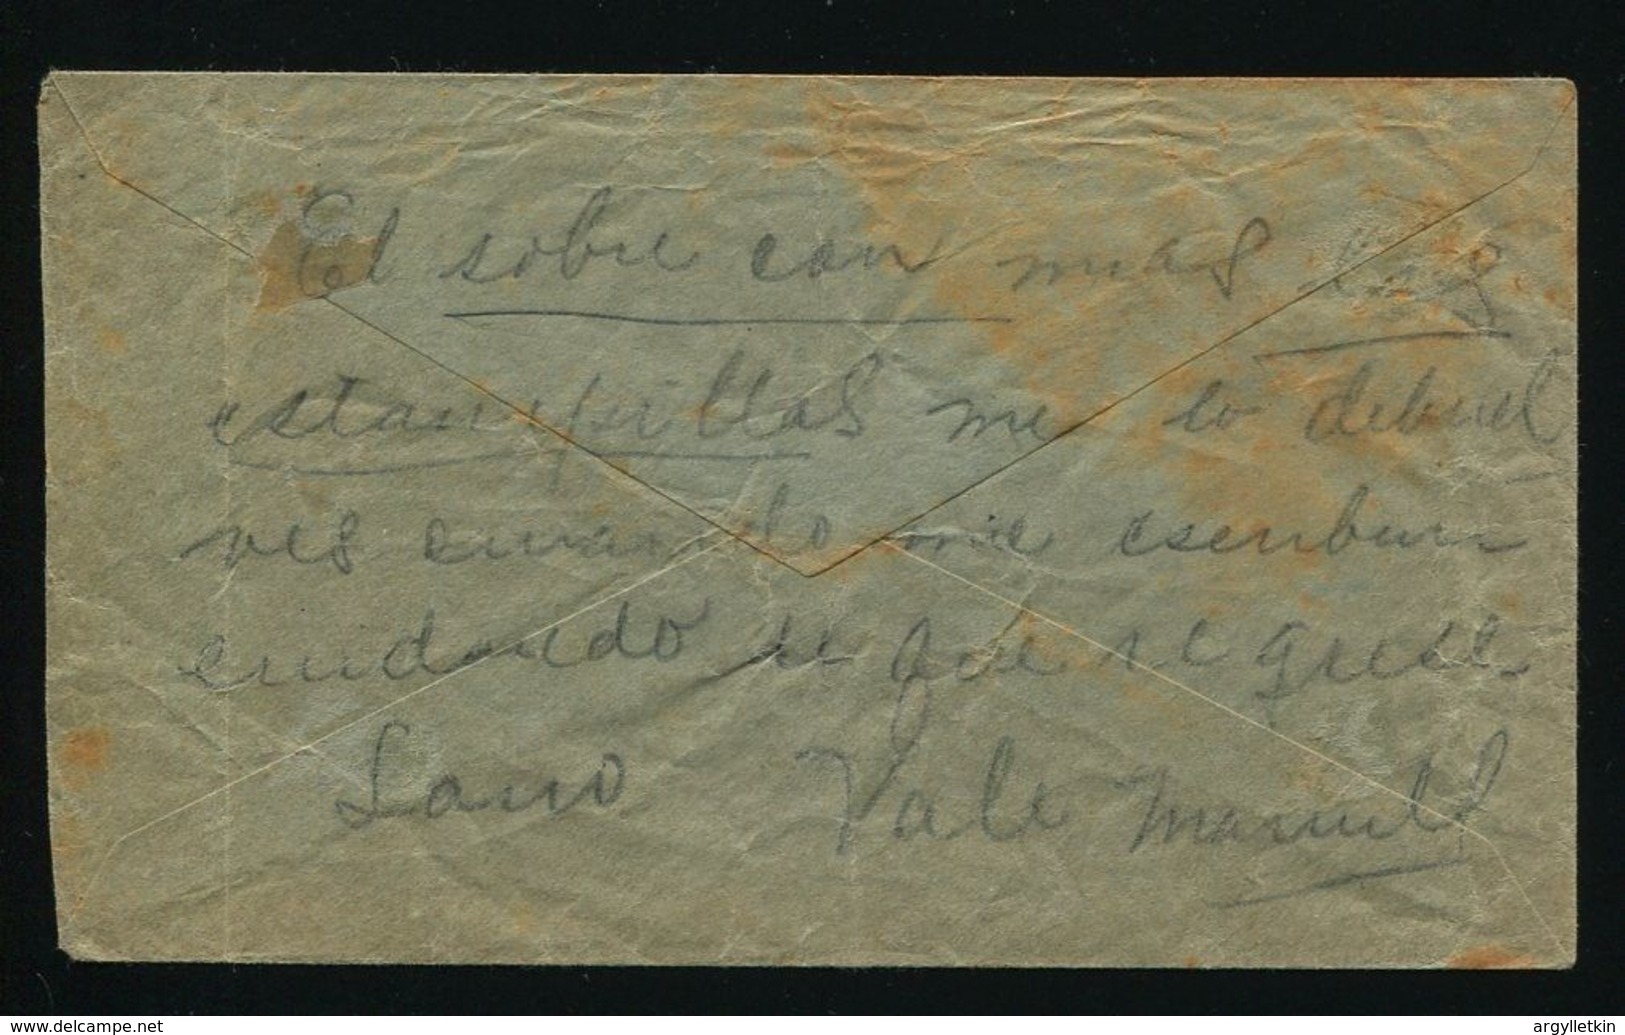 El sobre con mas las
estanpillas me lo debuel
ves cuando me escribas
cuidando de que se quede
Sano Vale Manuel
www.delcampe.net
argylletkin